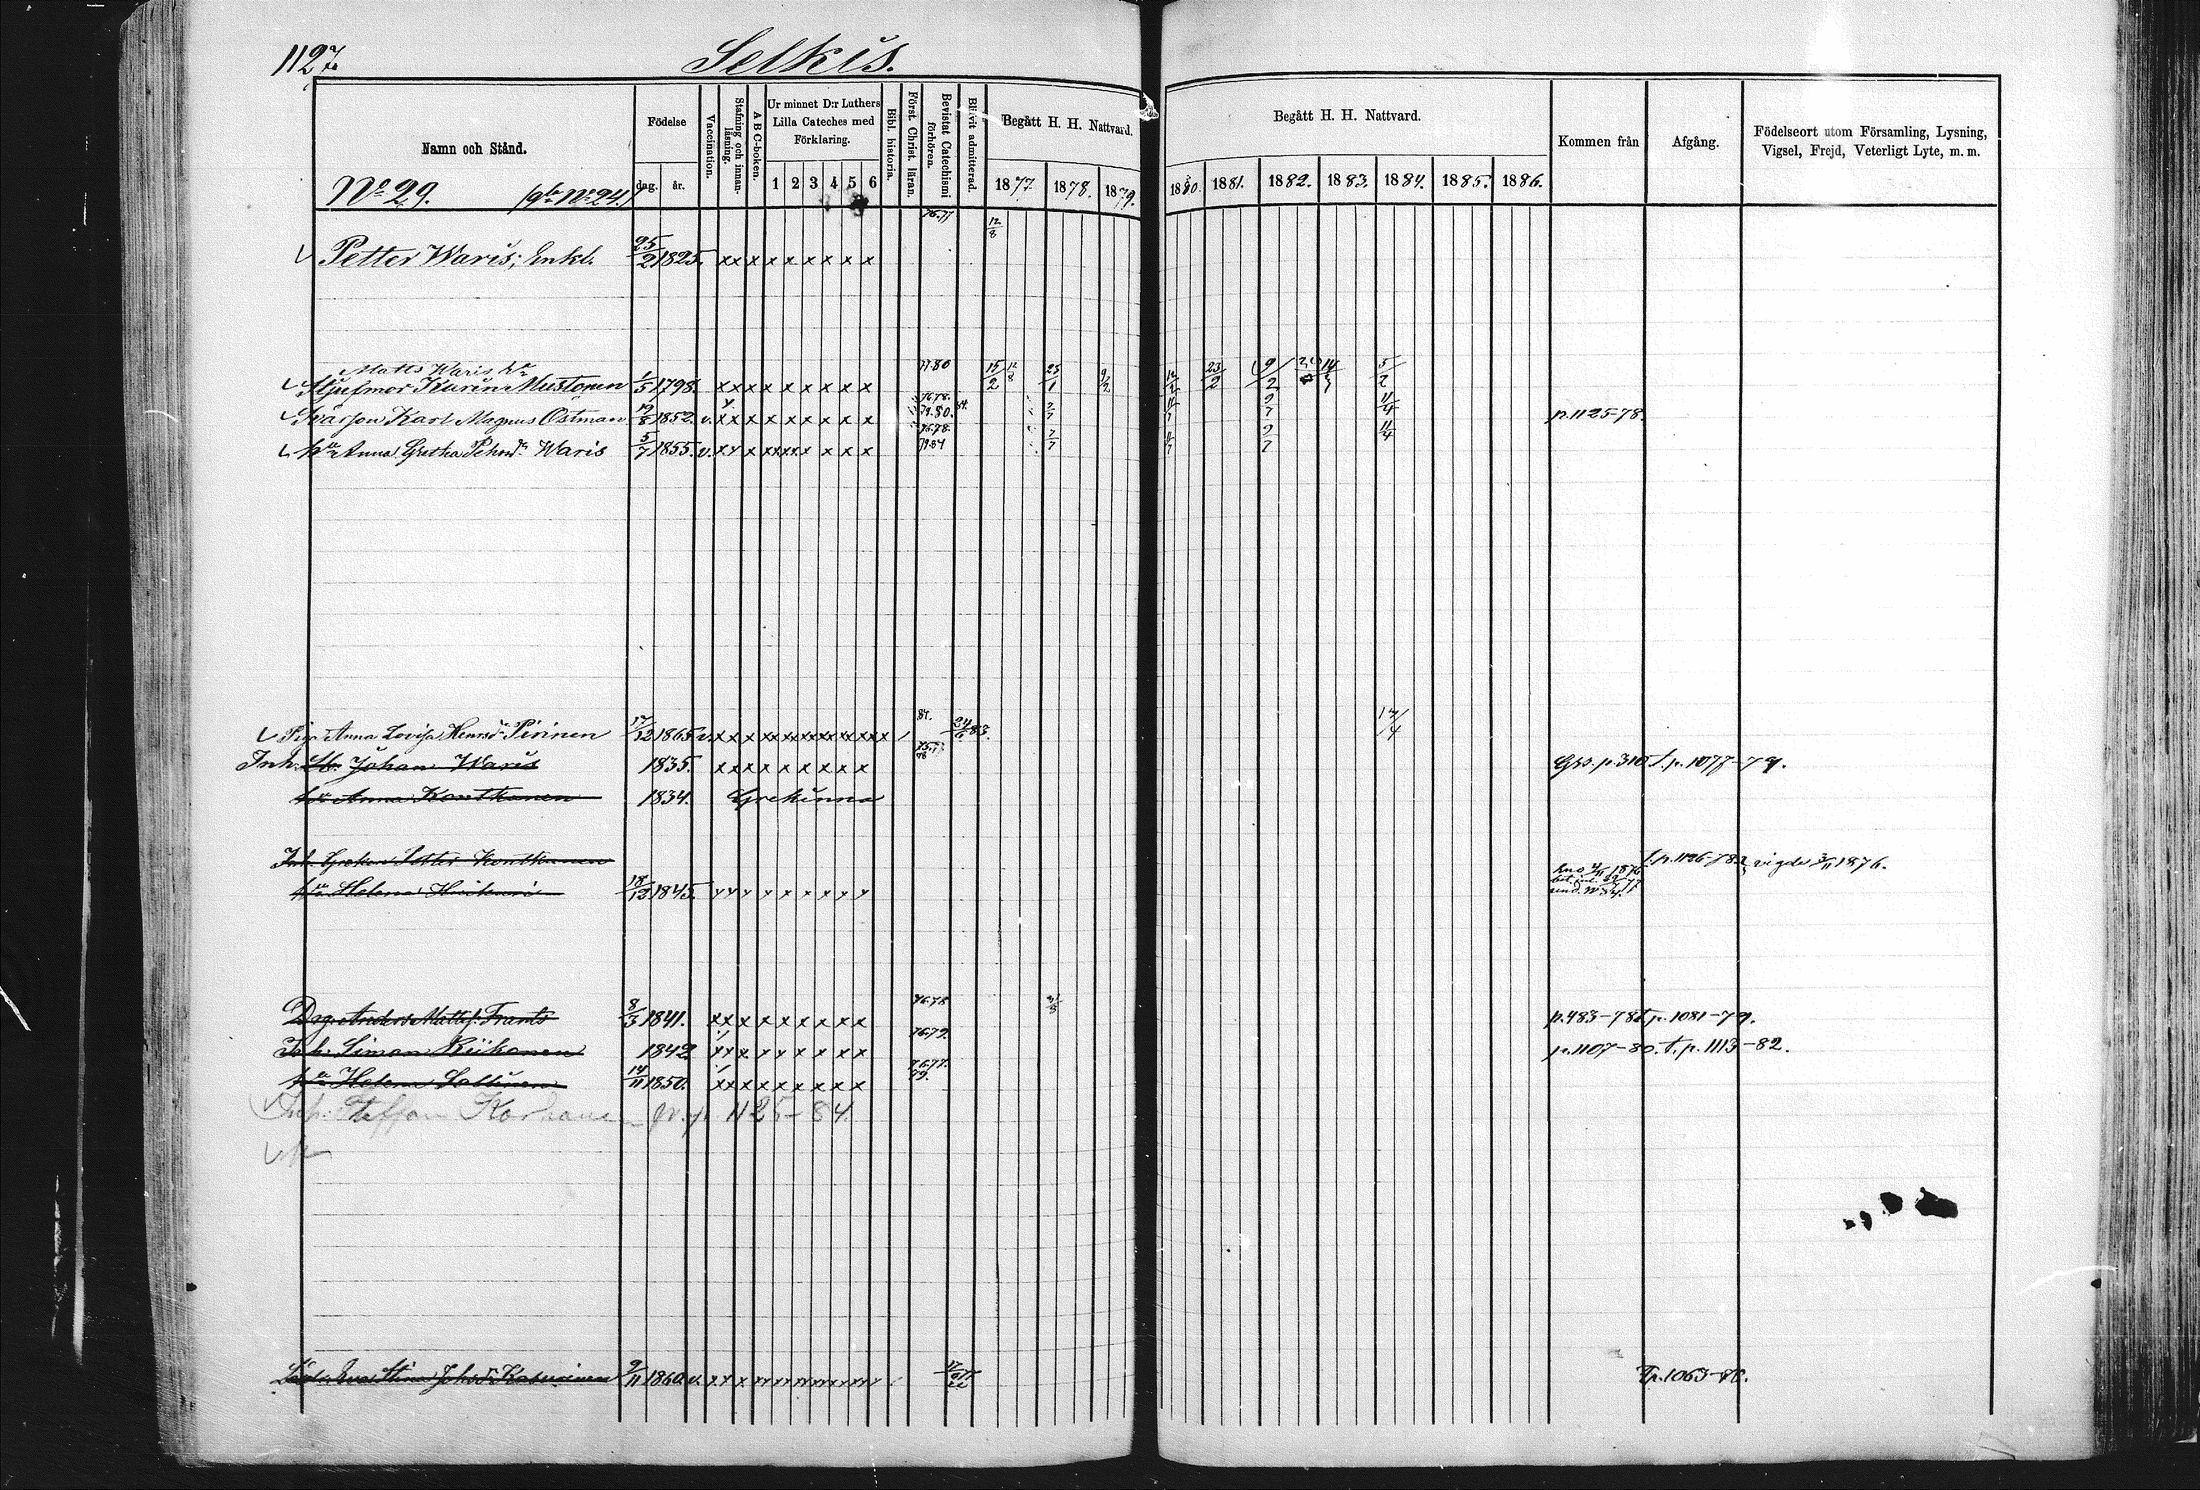 1127
Selkis.
Namn och Stånd.
Födelse
dag. år.
Vaccination.
Stafning och innanläsning.
A B C-boken.
Ur minnet D:r Luthers Lilla Cateches med Förklaring.
1 2 3 4 5 6
Bibl. historia.
Först. Christ. läran.
Bevistat Catechismi förhören.
Blifvit admitterad.
Begått H. H. Nattvard.
1877. 1878. 1879.
Begått H. H. Nattvard.
1880. 1881. 1882. 1883. 1884. 1885. 1886.
Kommen från
Afgång.
Födelseort utom Församling, Lysning, Vigsel, Frejd, Veterligt Lyte, m. m.
No 29. No 24.
Petter Waris, Enkl. 25/2 1825. x x x x x x x x x 76.77 12/8
Matts Waris
Karin Mustonen 1/5 1798. x x x x x x x x x 77.80 15/2 12/8 25/1 9/2 23/2 9/2 14/3 5/2
Svärson Karl Magnus Östman 19/8 1852. v. x x x x x x x x x 76.78. 79.80. 84. 7/7 11/7 9/7 11/4 p. 1125-78.
Anna Gretha Waris 5/7 1855. v. 76.78. 79.84 7/7 11/7 9/7 11/4
Pig. Anna Lovisa Henrsd. Pirinen 17/12 1865. v. 84. 83. 17/4
Inh. Johan Waris 1835. x x x x x x x x x p. 310 t. p. 1077-79.
Anna Kontkanen 1834. Grekinna
Inh. Greken Petter Kontkanen t. p. 1126-78. vigde 1876.
Helena 18/12 1845. x x x x x x x x x
Drg. Anders Matts. Frants 8/3 1841. x x x x x x x x x 76.78 p. 483-78 t. p. 1081-79.
Inh. Simon Riikonen 1842 x x x x x x x x x 76.79. p. 1107-80. t. p. 1113-82.
Helena 14/11 1850. x x x x x x x x x 76.77. 79.
Inh. Steffan Korhonen p. 1125-84.
Eva Stina Johsd. 9/11 1860. v. p. 1063